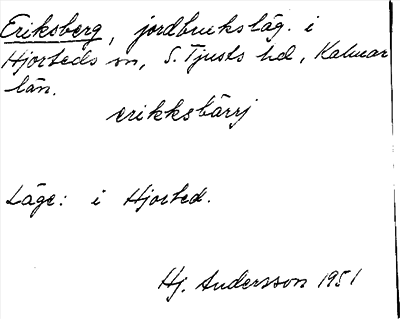 Eriksberg, jordbruksläg. i
Hjorteds sn, S. Tjusts hd, Kalmar
län.
erikksbärrj
Läge: i Hjorted.
Hj. Andersson 1951